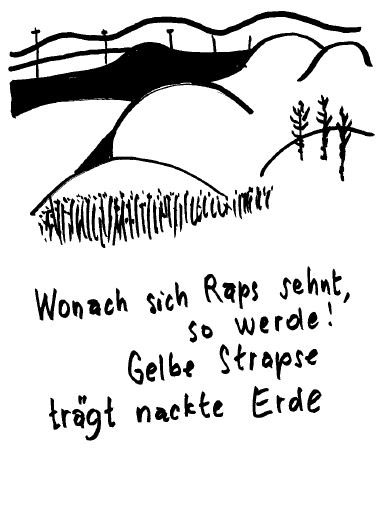 Wonach sich Raps sehnt,
so werde!
Gelbe Strapse
trägt nackte Erde